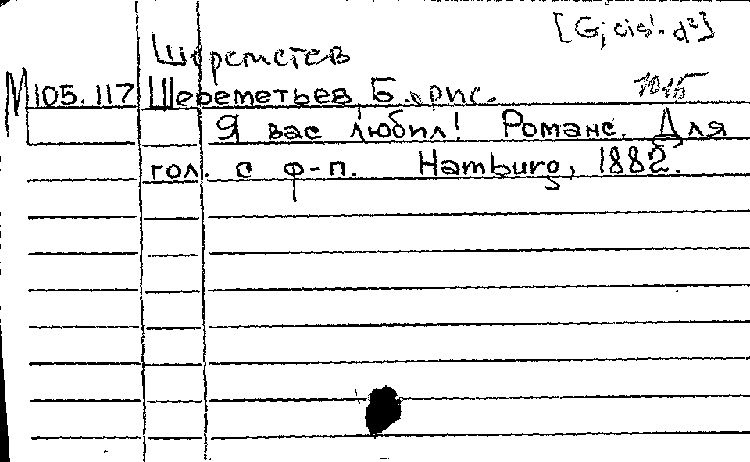 [G; cis¹-d²]
Шереметев
М105.117 Шереметьев, Борис. 1015
Я вас любил! Романс. Для
гол. с ф-п. Hamburg, 1882.